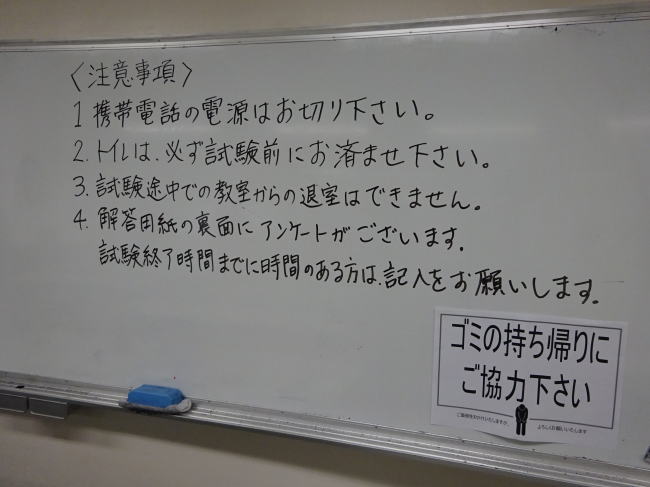 〈注意事項〉
1 携帯電話の電源はお切り下さい。
2. トイレは、必ず試験前にお済ませ下さい。
3. 試験途中での教室からの退室はできません。
4. 解答用紙の裏面にアンケートがございます。
試験終了時間までに時間のある方は、記入をお願いします。
ゴミの持ち帰りに
ご協力下さい
ご面倒をおかけいたしますが、
よろしくお願いいたします